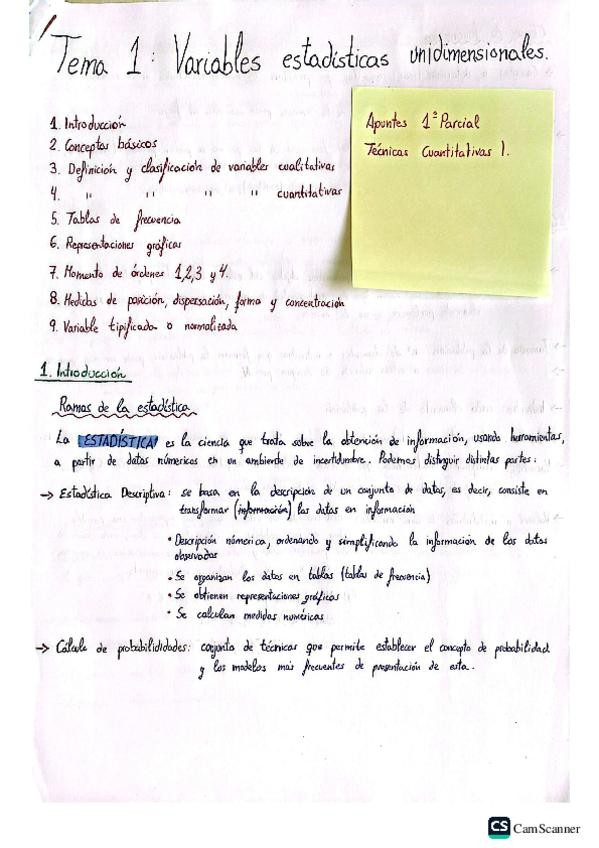 Tema 1: Variables estadísticas unidimensionales.
Apuntes 1º Parcial
Técnicas Cuantitativas 1.
1. Introducción
2. Conceptos básicos
3. Definición y clasificación de variables cualitativas
4. " " " " cuantitativas
5. Tablas de frecuencia
6. Representaciones gráficas
7. Momento de órdenes 1,2,3 y 4.
8. Medidas de posición, dispersación, forma y concentración
9. Variable tipificada o normalizada
1. Introducción
Ramas de la estadística
La ESTADÍSTICA es la ciencia que trata sobre la obtención de información, usando herramientas,
a partir de datos númericos en un ambiente de incertidumbre. Podemos distinguir distintas partes:
→ Estadística Descriptiva: se basa en la descripción de un conjunto de datos, es decir, consiste en
transformar (información) los datos en información
• Descripción númerica, ordenando y simplificando la información de los datos
observados
• Se organizan los datos en tablas (tablas de frecuencia)
• Se obtienen representaciones gráficas
• Se calculan medidas numéricas
→ Cálculo de probabilididades: conjunto de técnicas que permite establecer el concepto de probabilidad
y los modelos más frecuentes de presentación de esta.
CS CamScanner